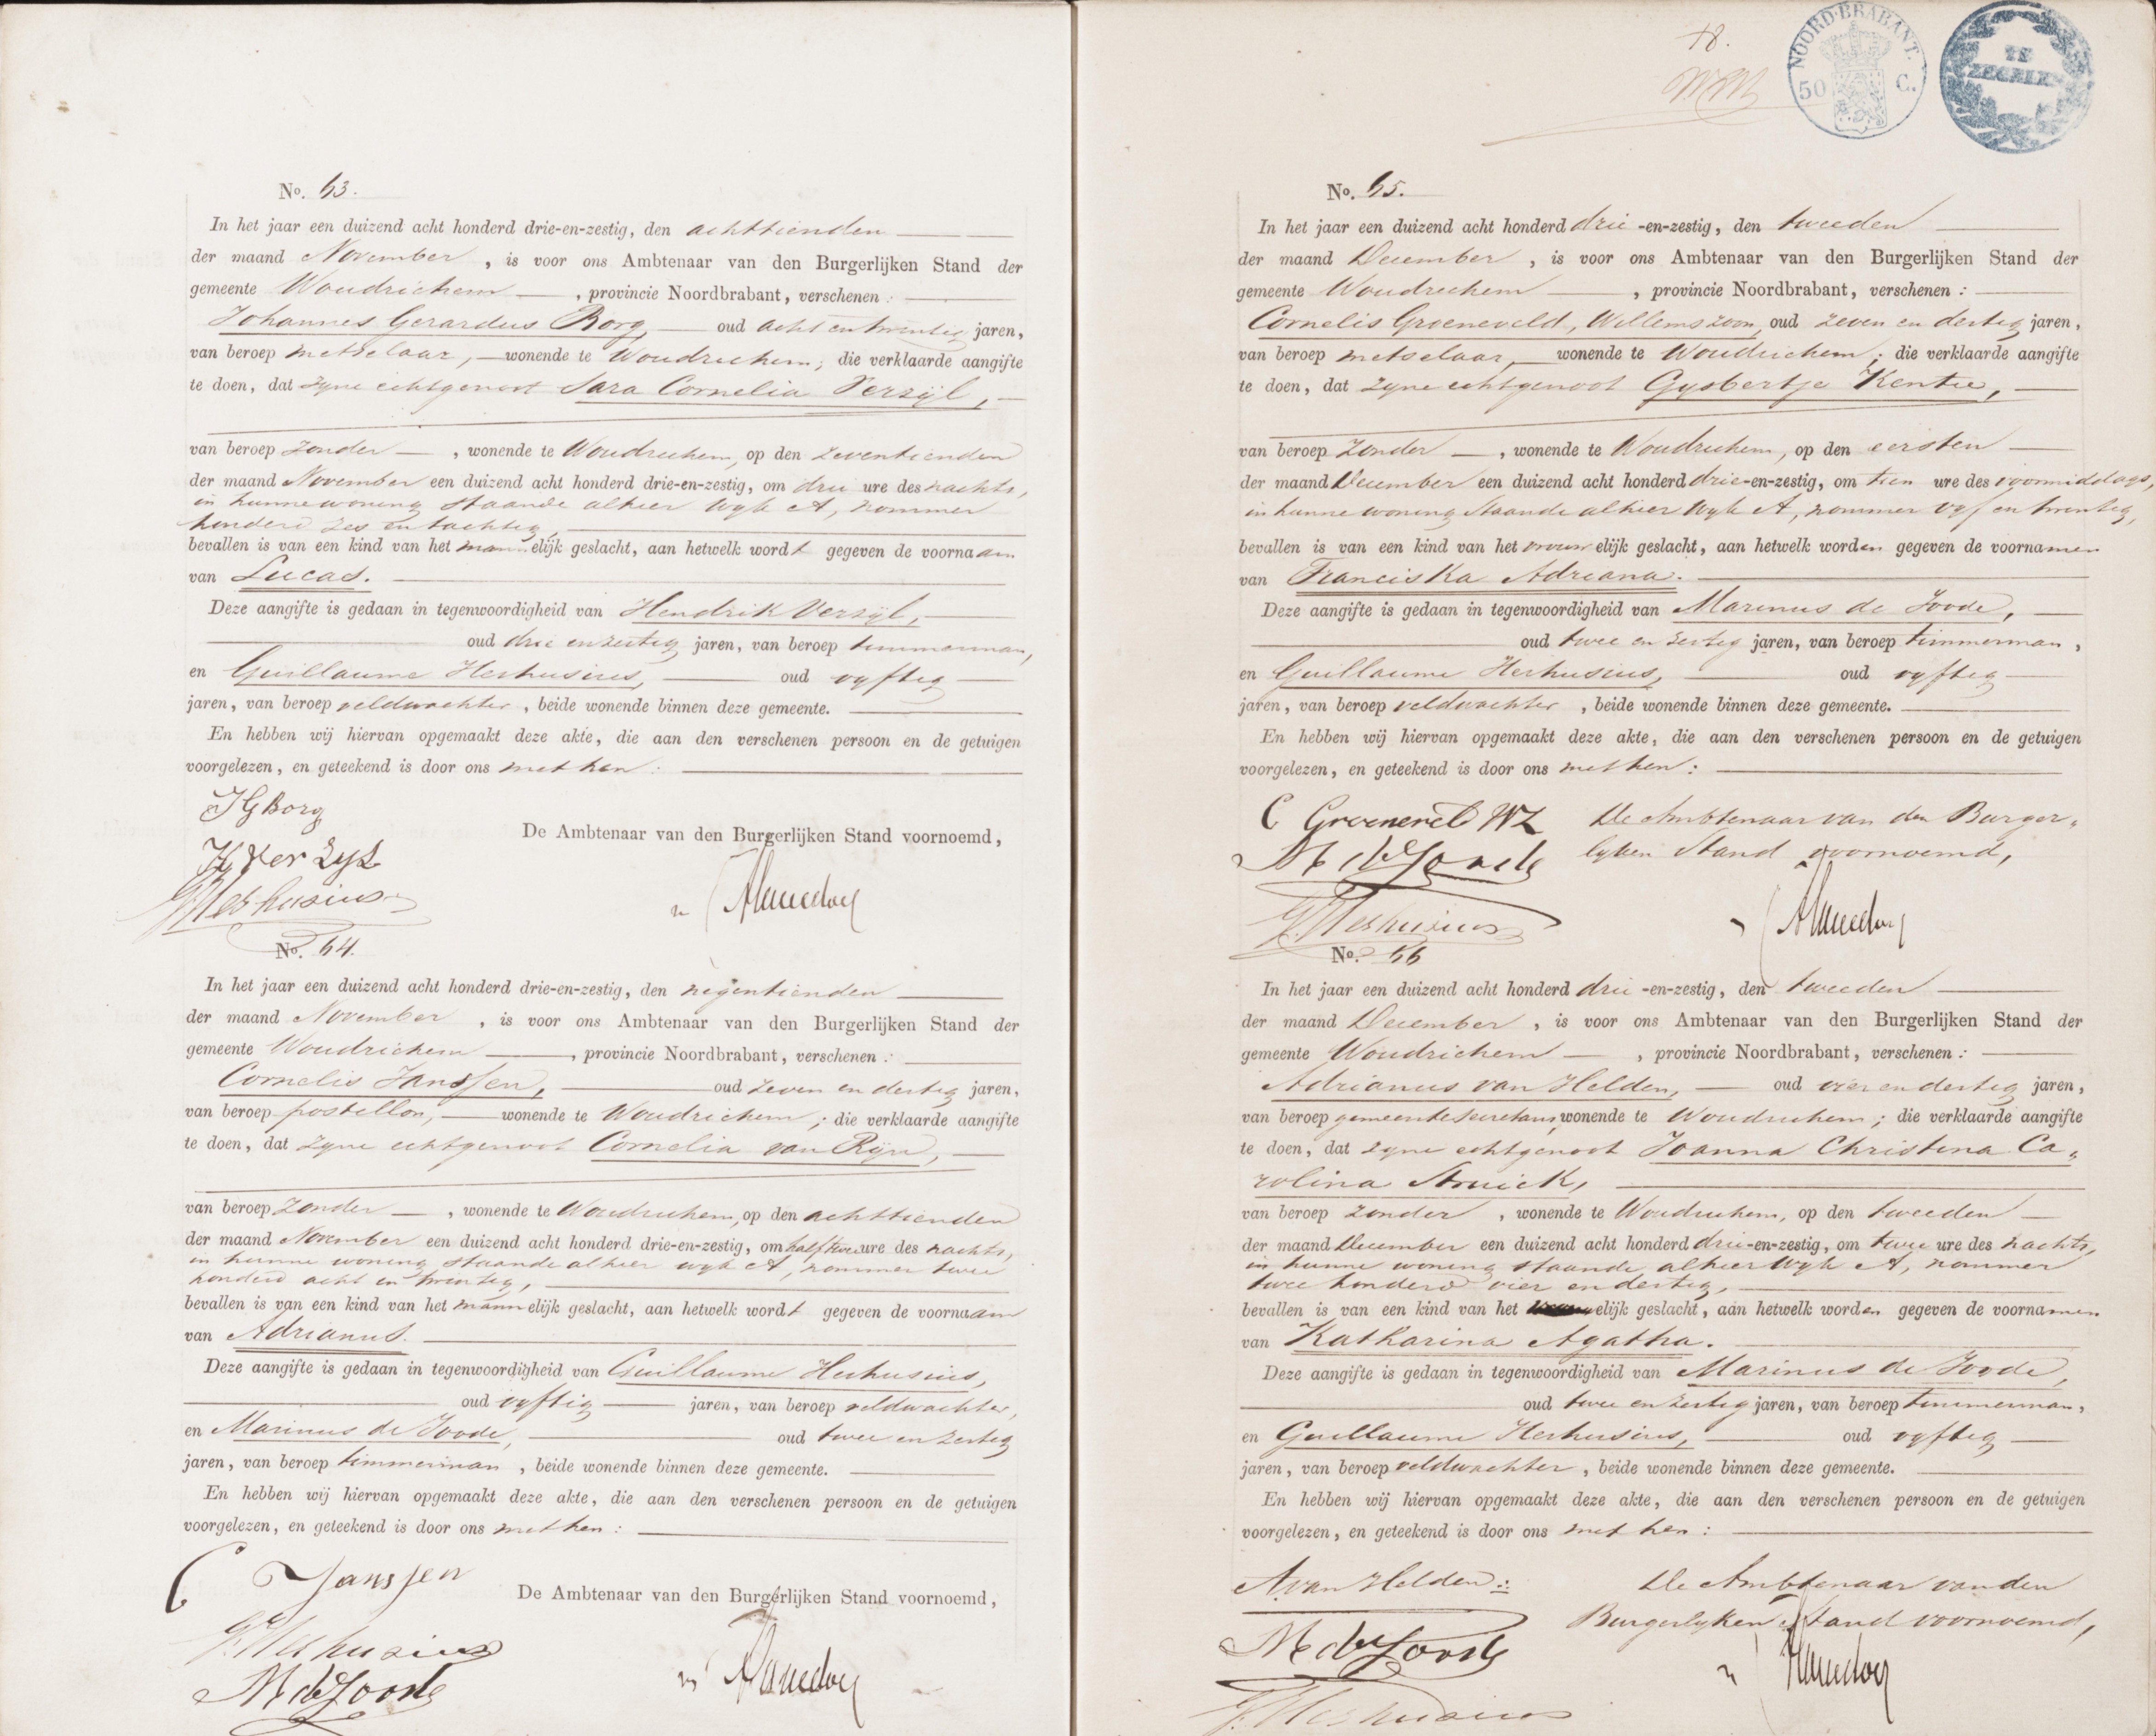 No. 63.
In het jaar een duizend acht honderd drie-en-zestig, den achttienden
der maand November, is voor ons Ambtenaar van den Burgerlijken Stand der
gemeente Woudrichem, provincie Noordbrabant, verschenen:
Johannes Gerardus Borg, oud acht en twintig jaren,
van beroep metselaar, wonende te Woudrichem; die verklaarde aangifte
te doen, dat zyne echtgenoot Sara Cornelia Verzijl,
van beroep zonder, wonende te Woudrichem, op den zeventienden
der maand November een duizend acht honderd drie-en-zestig, om drie ure des nachts,
in hunne woning staande alhier wyk A, nommer
honderd zes en tachtig,
bevallen is van een kind van het mannelijk geslacht, aan hetwelk wordt gegeven de voornaam
van Lucas.
Deze aangifte is gedaan in tegenwoordigheid van Hendrik Verzijl,
oud drie en zestig jaren, van beroep timmerman,
en Guillaume Heshusius, oud vyftig
jaren, van beroep veldwachter, beide wonende binnen deze gemeente.
En hebben wij hiervan opgemaakt deze akte, die aan den verschenen persoon en de getuigen
voorgelezen, en geteekend is door ons met hen:
J G Borg
De Ambtenaar van den Burgerlijken Stand voornoemd,
H Ver Zyl
G. Heshusius
No. 64.
In het jaar een duizend acht honderd drie-en-zestig, den negentienden
der maand November, is voor ons Ambtenaar van den Burgerlijken Stand der
gemeente Woudrichem, provincie Noordbrabant, verschenen:
Cornelis Janssen, oud zeven en dertig jaren,
van beroep postillon, wonende te Woudrichem; die verklaarde aangifte
te doen, dat zyne echtgenoot Cornelia van Rijn,
van beroep zonder, wonende te Woudrichem, op den achttienden
der maand November een duizend acht honderd drie-en-zestig, om half twee ure des nachts,
in hunne woning staande alhier wyk A, nommer twee
honderd acht en twintig,
bevallen is van een kind van het mannelijk geslacht, aan hetwelk wordt gegeven de voornaam
van Adrianus.
Deze aangifte is gedaan in tegenwoordigheid van Guillaume Heshusius,
oud vyftig jaren, van beroep veldwachter,
en Marinus de Joode, oud twee en zestig
jaren, van beroep timmerman, beide wonende binnen deze gemeente.
En hebben wij hiervan opgemaakt deze akte, die aan den verschenen persoon en de getuigen
voorgelezen, en geteekend is door ons met hen:
C Janssen
De Ambtenaar van den Burgerlijken Stand voornoemd,
G. Heshusius
M de Joode
18.
NOORD-BRABANT.
50 C.
TE
ZEGELEN
No. 65.
In het jaar een duizend acht honderd drie-en-zestig, den tweeden
der maand December, is voor ons Ambtenaar van den Burgerlijken Stand der
gemeente Woudrichem, provincie Noordbrabant, verschenen:
Cornelis Groeneveld, Willemszoon, oud zeven en dertig jaren,
van beroep metselaar, wonende te Woudrichem; die verklaarde aangifte
te doen, dat zyne echtgenoot Gysbertje Kentie,
van beroep zonder, wonende te Woudrichem, op den eersten
der maand December een duizend acht honderd drie-en-zestig, om tien ure des voormiddags,
in hunne woning staande alhier wyk A, nommer vyf en twintig,
bevallen is van een kind van het vrouwelijk geslacht, aan hetwelk worden gegeven de voornamen
van Franciska Adriana.
Deze aangifte is gedaan in tegenwoordigheid van Marinus de Joode,
oud twee en zestig jaren, van beroep timmerman,
en Guillaume Heshusius, oud vyftig
jaren, van beroep veldwachter, beide wonende binnen deze gemeente.
En hebben wij hiervan opgemaakt deze akte, die aan den verschenen persoon en de getuigen
voorgelezen, en geteekend is door ons met hen:
C Groeneveld WZ De Ambtenaar van den Burger„
M de Joode lyken Stand voornoemd,
G. Heshusius
No. 66
In het jaar een duizend acht honderd drie-en-zestig, den tweeden
der maand December, is voor ons Ambtenaar van den Burgerlijken Stand der
gemeente Woudrichem, provincie Noordbrabant, verschenen:
Adrianus van Helden, oud vier en dertig jaren,
van beroep gemeentesecretaris, wonende te Woudrichem; die verklaarde aangifte
te doen, dat zyne echtgenoot Joanna Christina Ca„
rolina Struick,
van beroep zonder, wonende te Woudrichem, op den tweeden
der maand December een duizend acht honderd drie-en-zestig, om twee ure des nachts,
in hunne woning staande alhier wyk A, nommer
twee honderd vier en dertig,
bevallen is van een kind van het elijk geslacht, aan hetwelk worden gegeven de voornamen
van Katharina Agatha.
Deze aangifte is gedaan in tegenwoordigheid van Marinus de Joode,
oud twee en zestig jaren, van beroep timmerman,
en Guillaume Heshusius, oud vyftig
jaren, van beroep veldwachter, beide wonende binnen deze gemeente.
En hebben wij hiervan opgemaakt deze akte, die aan den verschenen persoon en de getuigen
voorgelezen, en geteekend is door ons met hen:
A. van Helden De Ambtenaar van den
Burgerlyken Stand voornoemd,
M de Joode
G. Heshusius